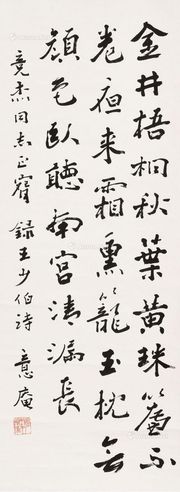 金井梧桐秋葉黃珠簾不
卷夜来霜熏籠玉枕無
顔色臥聽南宮清漏長
竟杰同志正賓 録王少伯诗 意庵